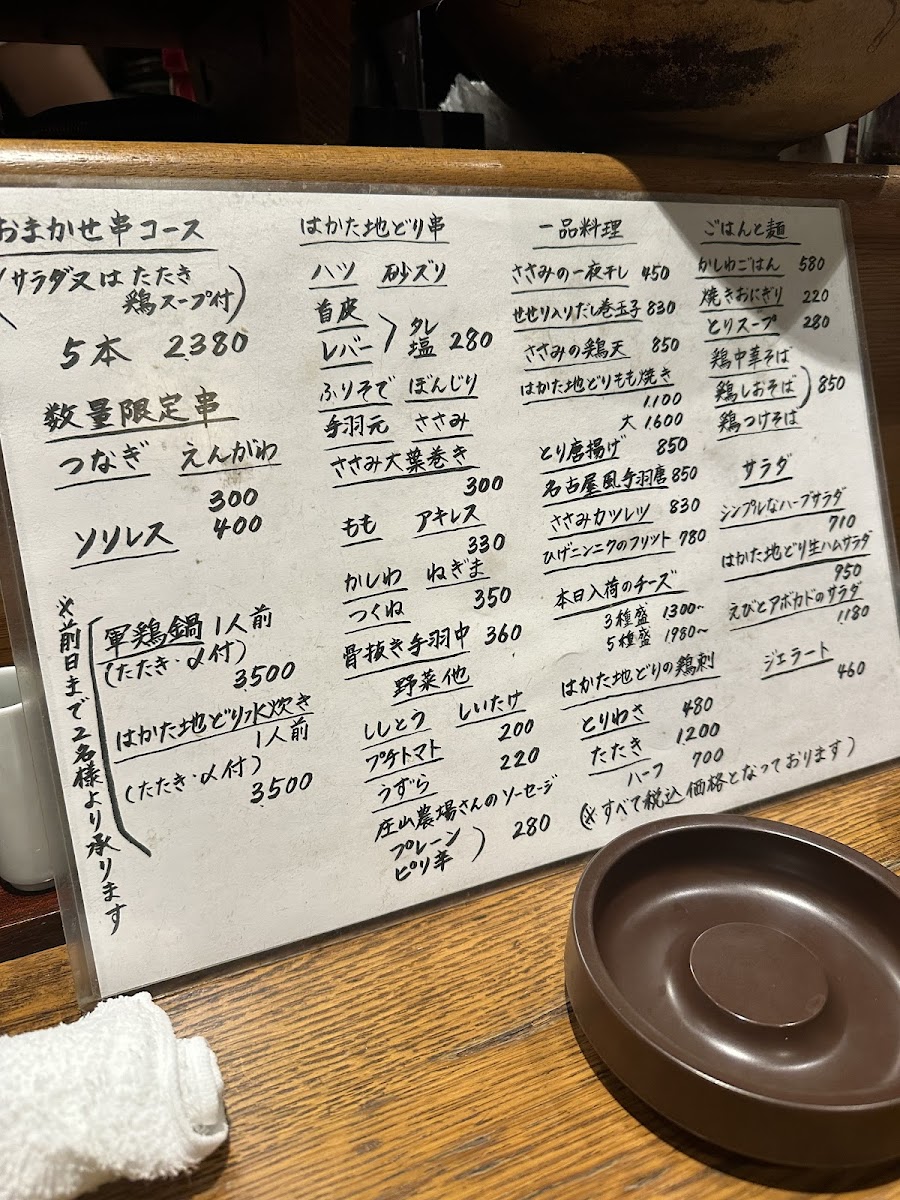 おまかせ串コース
(サラダ又は たたき
鶏スープ付)
5本 2380
数量限定串
つなぎ えんがわ
300
ソリレス 400
※前日まで2名様より承ります
軍鶏鍋 1人前
(たたき・〆付)
3500
はかた地どり水炊き
1人前
(たたき・〆付)
3500
はかた地どり串
ハツ 砂ズリ
首皮
レバー
タレ
塩 280
ふりそで ぼんじり
手羽元 ささみ
ささみ大葉巻き
300
もも アキレス
330
かしわ ねぎま
つくね 350
骨抜き手羽中 360
野菜他
ししとう しいたけ
200
プチトマト
220
うずら
庄山農場さんのソーセージ
プレーン
ピリ辛
) 280
一品料理
ささみの一夜干し 450
せせり入りだし巻玉子 830
ささみの鶏天 850
はかた地どりもも焼き
1.100
大 1600
とり唐揚げ 850
名古屋風手羽唐 850
ささみカツレツ 830
ひげニンニクのフリット 780
本日入荷のチーズ
3種盛 1300~
5種盛 1980~
はかた地どりの鶏刺
とりわさ 480
たたき 1.200
ハーフ 700
(※すべて税込価格となっております)
ごはんと麺
かしわごはん 580
焼きおにぎり 220
とりスープ 280
鶏中華そば
鶏しおそば) 850
鶏つけそば
サラダ
シンプルなハーブサラダ
710
はかた地どり生ハムサラダ
950
えびとアボカドのサラダ
1180
ジェラート
460